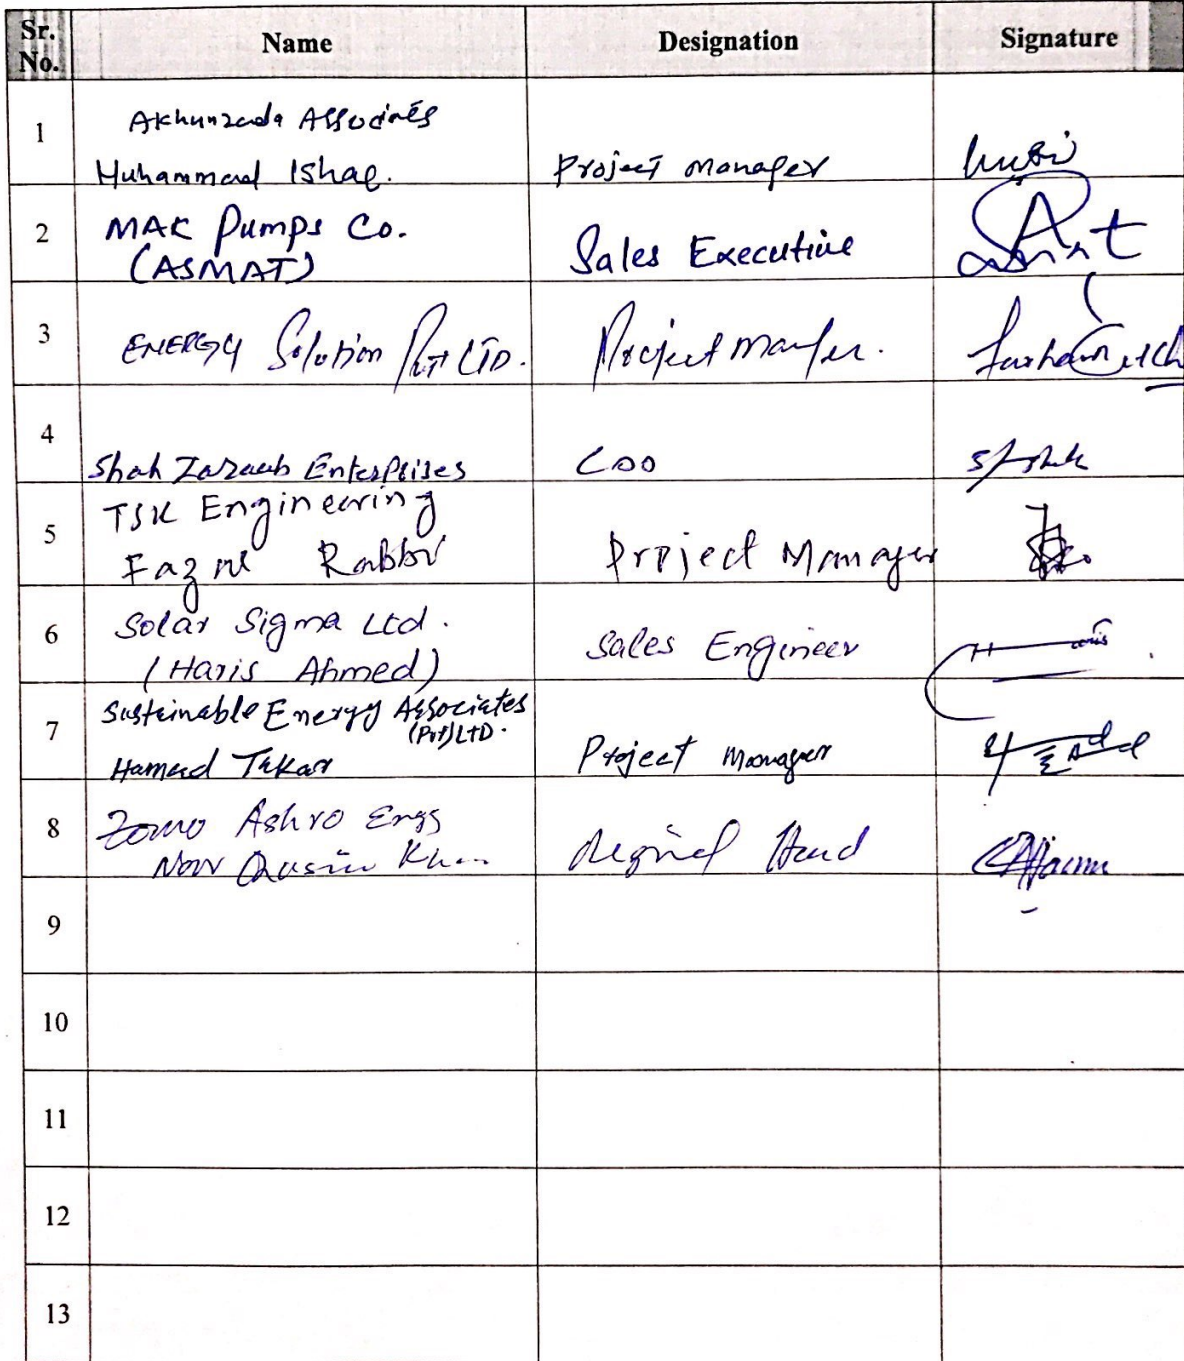 Sr. No. Name Designation Signature
1 Akhunzada Associates
Muhammad Ishaq. Project Manager
2 MAK Pumps Co.
(ASMAT) Sales Executive
3 ENERGY Solution Pvt LTD. Project Manager.
4 Shah Zaraab Enterprises COO
5 TSK Engineering
Fazal Rabbi Project Manager
6 Solar Sigma Ltd.
(Haris Ahmed) Sales Engineer
7 Sustainable Energy Associates
(Pvt) LTD.
Hamad Project Manager
8 Ashro Engg
Khan Regional Head
9
10
11
12
13